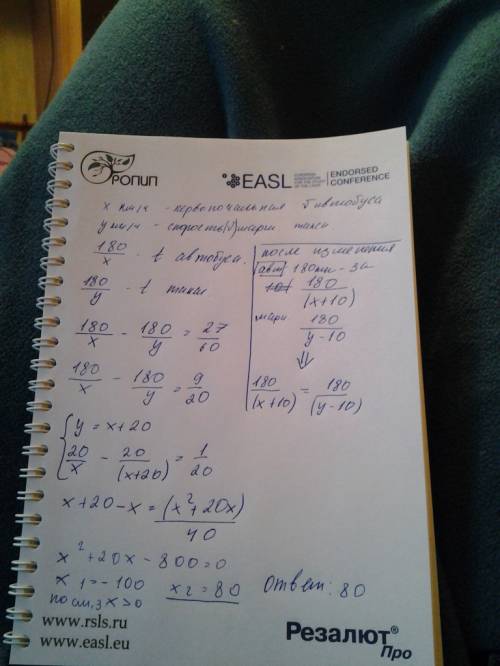 РОПИП
EASL
EUROPEAN ASSOCIATION FOR THE STUDY OF THE LIVER
ENDORSED
CONFERENCE
x км/ч - первоначальная автобуса
y км/ч - скорость (V) марш такси
180/x - t автобуса
180/y - t такси
180/x - 180/y = 27/60
180/x - 180/y = 9/20
после изменения
авт 180км - за
180/(x+10)
марш 180/y-10
⇓
180/(x+10) = 180/(y-10)
{ y = x+20
20/x - 20/(x+20) = 1/20
x+20-x = (x²+20x)/40
x²+20x-800=0
x1=-100 x2=80
по см, з x>0
Ответ: 80
www.rsls.ru
www.easl.eu
Резалют®
Про